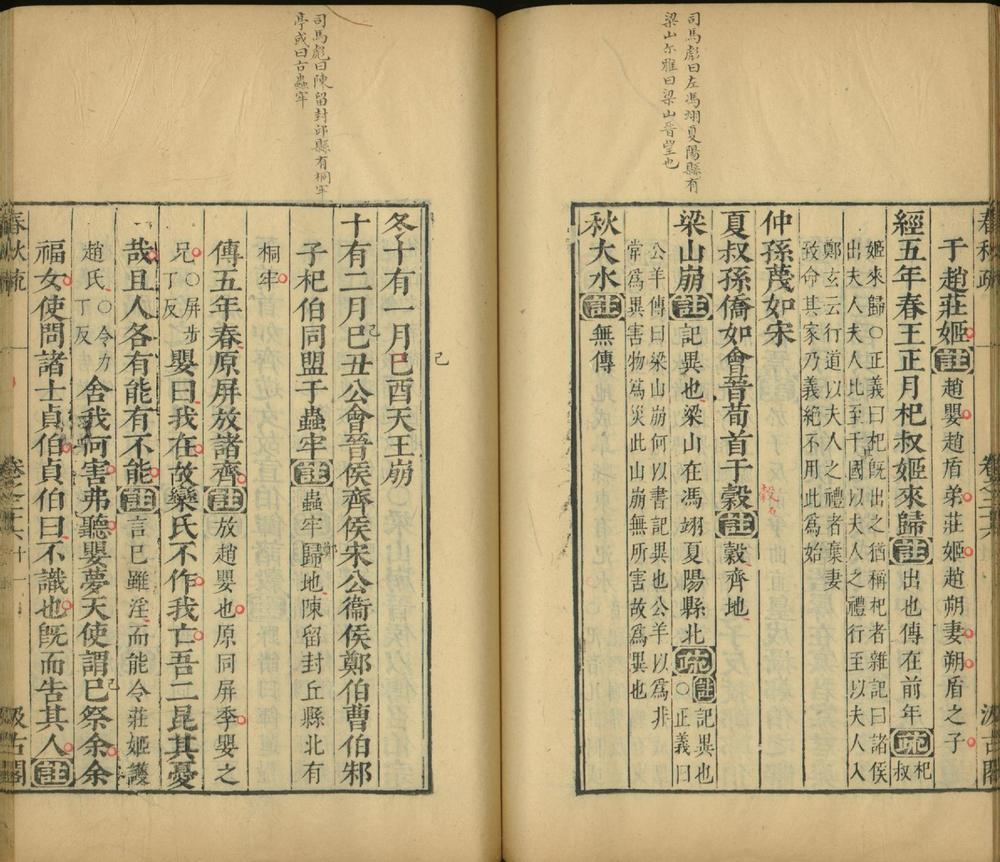 司馬彪曰左馮翊夏陽縣有
梁山尓雅曰梁山晉望也
春秋疏
卷二十六
汲古閣
于趙莊姬註趙嬰趙盾弟莊姬趙朔妻朔盾之子
經五年春王正月杞叔姬來歸註出也傳在前年疏杞叔
姬來歸○正義曰杞旣出之猶稱杞者雜記曰諸侯
出夫人夫人比至于國以夫人之禮行至以夫人入
鄭玄云行道以夫人之禮者棄妻
致命其家乃義絕不用此爲始
仲孫蔑如宋
夏叔孫僑如會晉荀首于穀註穀齊地
穀
梁山崩註記異也梁山在馮翊夏陽縣北疏註記異也○正義曰
公羊傳曰梁山崩何以書記異也公羊以爲非
常爲異害物爲災此山崩無所害故爲異也
秋大水註無傳
司馬彪曰陳留封邱縣有桐牢
亭或曰古蟲牢
冬十有一月巳酉天王崩
己
十有二月巳丑公會晉侯齊侯宋公衞侯鄭伯曹伯邾
己
子杞伯同盟于蟲牢註蟲牢歸地陳留封丘縣北有
鄭
桐牢
傳五年春原屏放諸齊註放趙嬰也原同屏季嬰之
兄○屏步丁反嬰曰我在故欒氏不作我亡吾二昆其憂
哉且人各有能有不能註言巳雖淫而能令莊姬護
趙氏○令力丁反舍我何害弗聽嬰夢天使謂巳祭余余
己
福女使問諸士貞伯貞伯曰不識也旣而告其人註
春秋疏
卷二十六
十一
汲古閣